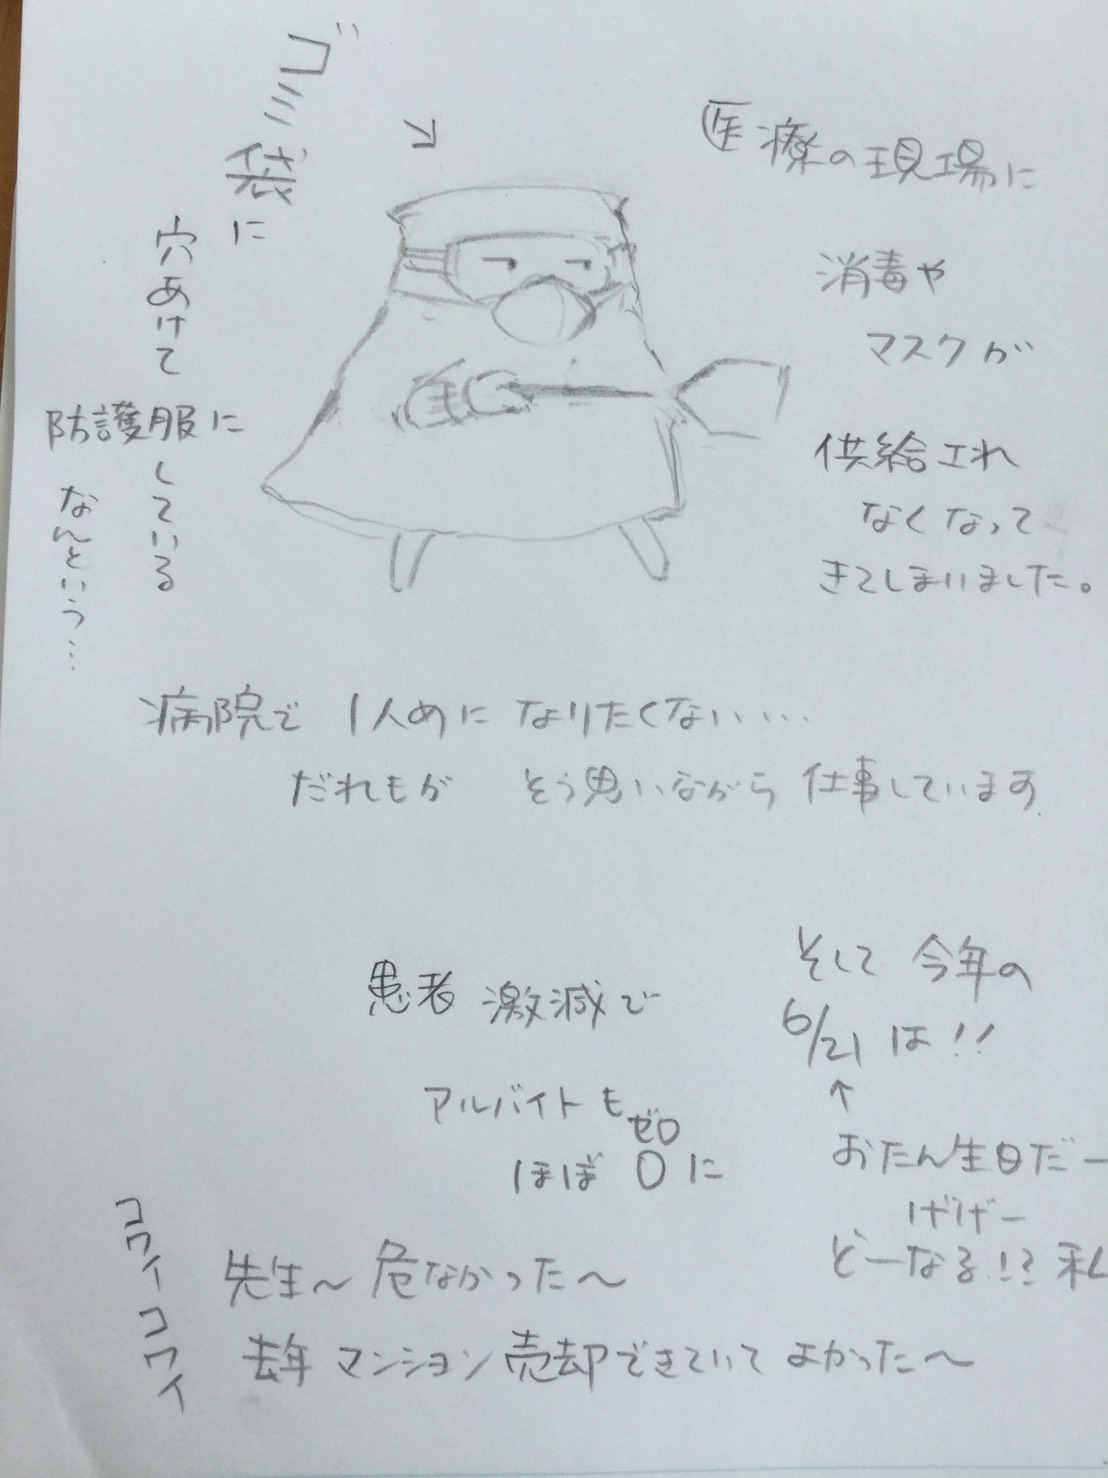 医療の現場に
消毒や
マスクが
供給エれ
なくなって
きてしまいました。
ゴミ袋に
穴あけて
防護服に
している
なんという…
病院で 1人めに なりたくない…
だれもが そう思いながら 仕事しています
患者 激減で
アルバイトも
ゼロ
ほぼ 0に
そして 今年の
6/21 は!!
↑
おたん生日だー
げげー
どーなる!? 私
コワイーコワイ
先生〜 危なかった〜
去年 マンション 売却できていて よかった〜